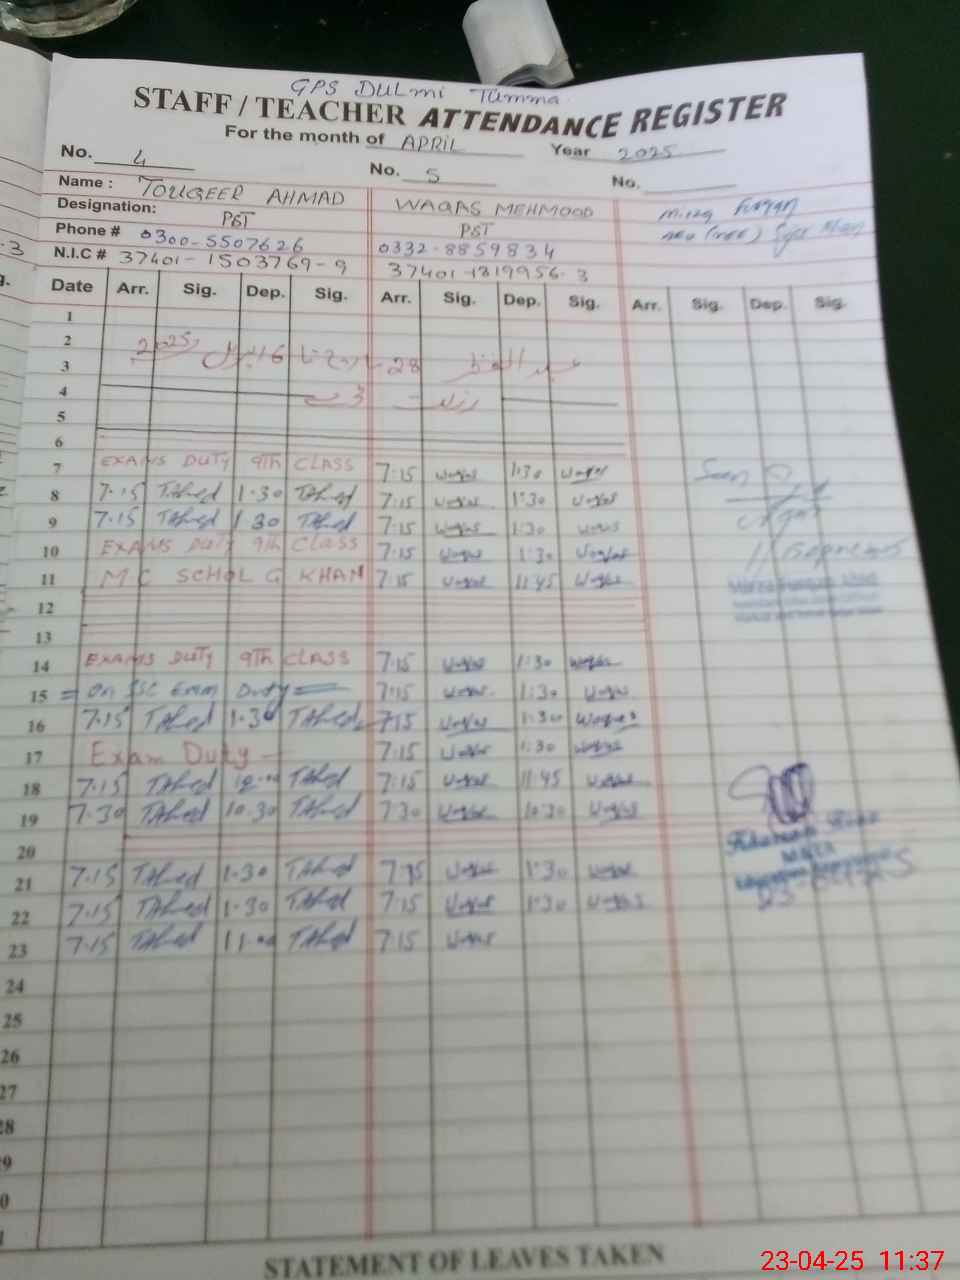 GPS DULmi Tumma
STAFF / TEACHER ATTENDANCE REGISTER
For the month of APRIL Year 2025
No. 4 No. 5 No.
Name : TOUQEER AHMAD WAQAS MEHMOOD
Designation: PST PST
Phone # 0300-5507626 0332-8859834
N.I.C # 37401-1503769-9 37401-1319956-3
Date Arr. Sig. Dep. Sig. Arr. Sig. Dep. Sig. Arr. Sig. Dep. Sig.
1
2
3 عید الفطر 28 مارچ تا 6 اپریل 2025
4
5
6
7 EXAMS DUTY 9th CLASS 7:15 Waqas 1:30 Waqas Seen
8 7.15 TAhed 1.30 TAhed 7:15 Waqas 1:30 Waqas
9 7.15 TAhed 1 30 TAhed 7:15 Waqas 1:30 Waqas
10 EXAMS DUTY 9th CLASS 7:15 Waqas 1:30 Waqas
11 M C SCHOL G KHAN 7:15 Waqas 11:45 Waqas
12
13
14 EXAMS DUTY 9TH CLASS 7:15 Waqas 1:30 Waqas
15 = On SSC Exam Duty = 7:15 Waqas 1:30 Waqas
16 7.15 TAhed 1.30 TAhed 7:15 Waqas 1:30 Waqas
17 Exam Duty - 7:15 Waqas 1:30 Waqas
18 7.15 TAhed 12.00 TAhed 7:15 Waqas 11:45 Waqas
19 7.30 TAhed 10.30 TAhed 7:30 Waqas 10:30 Waqas
20
21 7.15 TAhed 1.30 TAhed 7:15 Waqas 1:30 Waqas
22 7.15 TAhed 1.30 TAhed 7:15 Waqas 1:30 Waqas
23 7.15 TAhed 11.00 TAhed 7:15 Waqas
24
25
26
27
28
9
0
1
STATEMENT OF LEAVES TAKEN
23-04-25 11:37